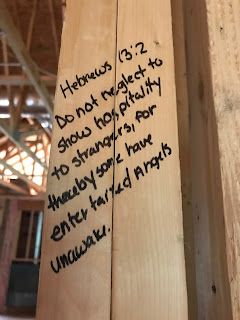 Hebrews 13:2
Do not neglect to
show hospitality
to strangers, for
thereby some have
entertained Angels
unaware.